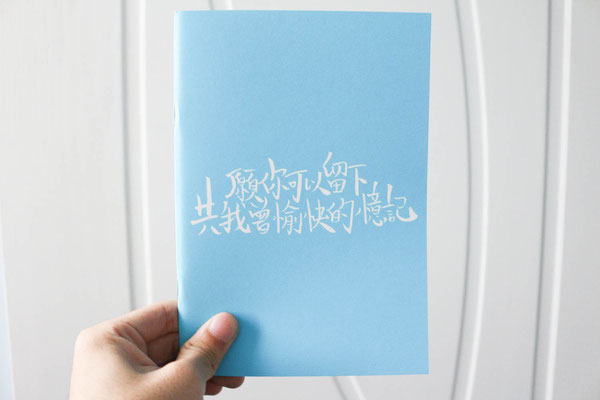 願你可以留下
共我曾愉快的憶記